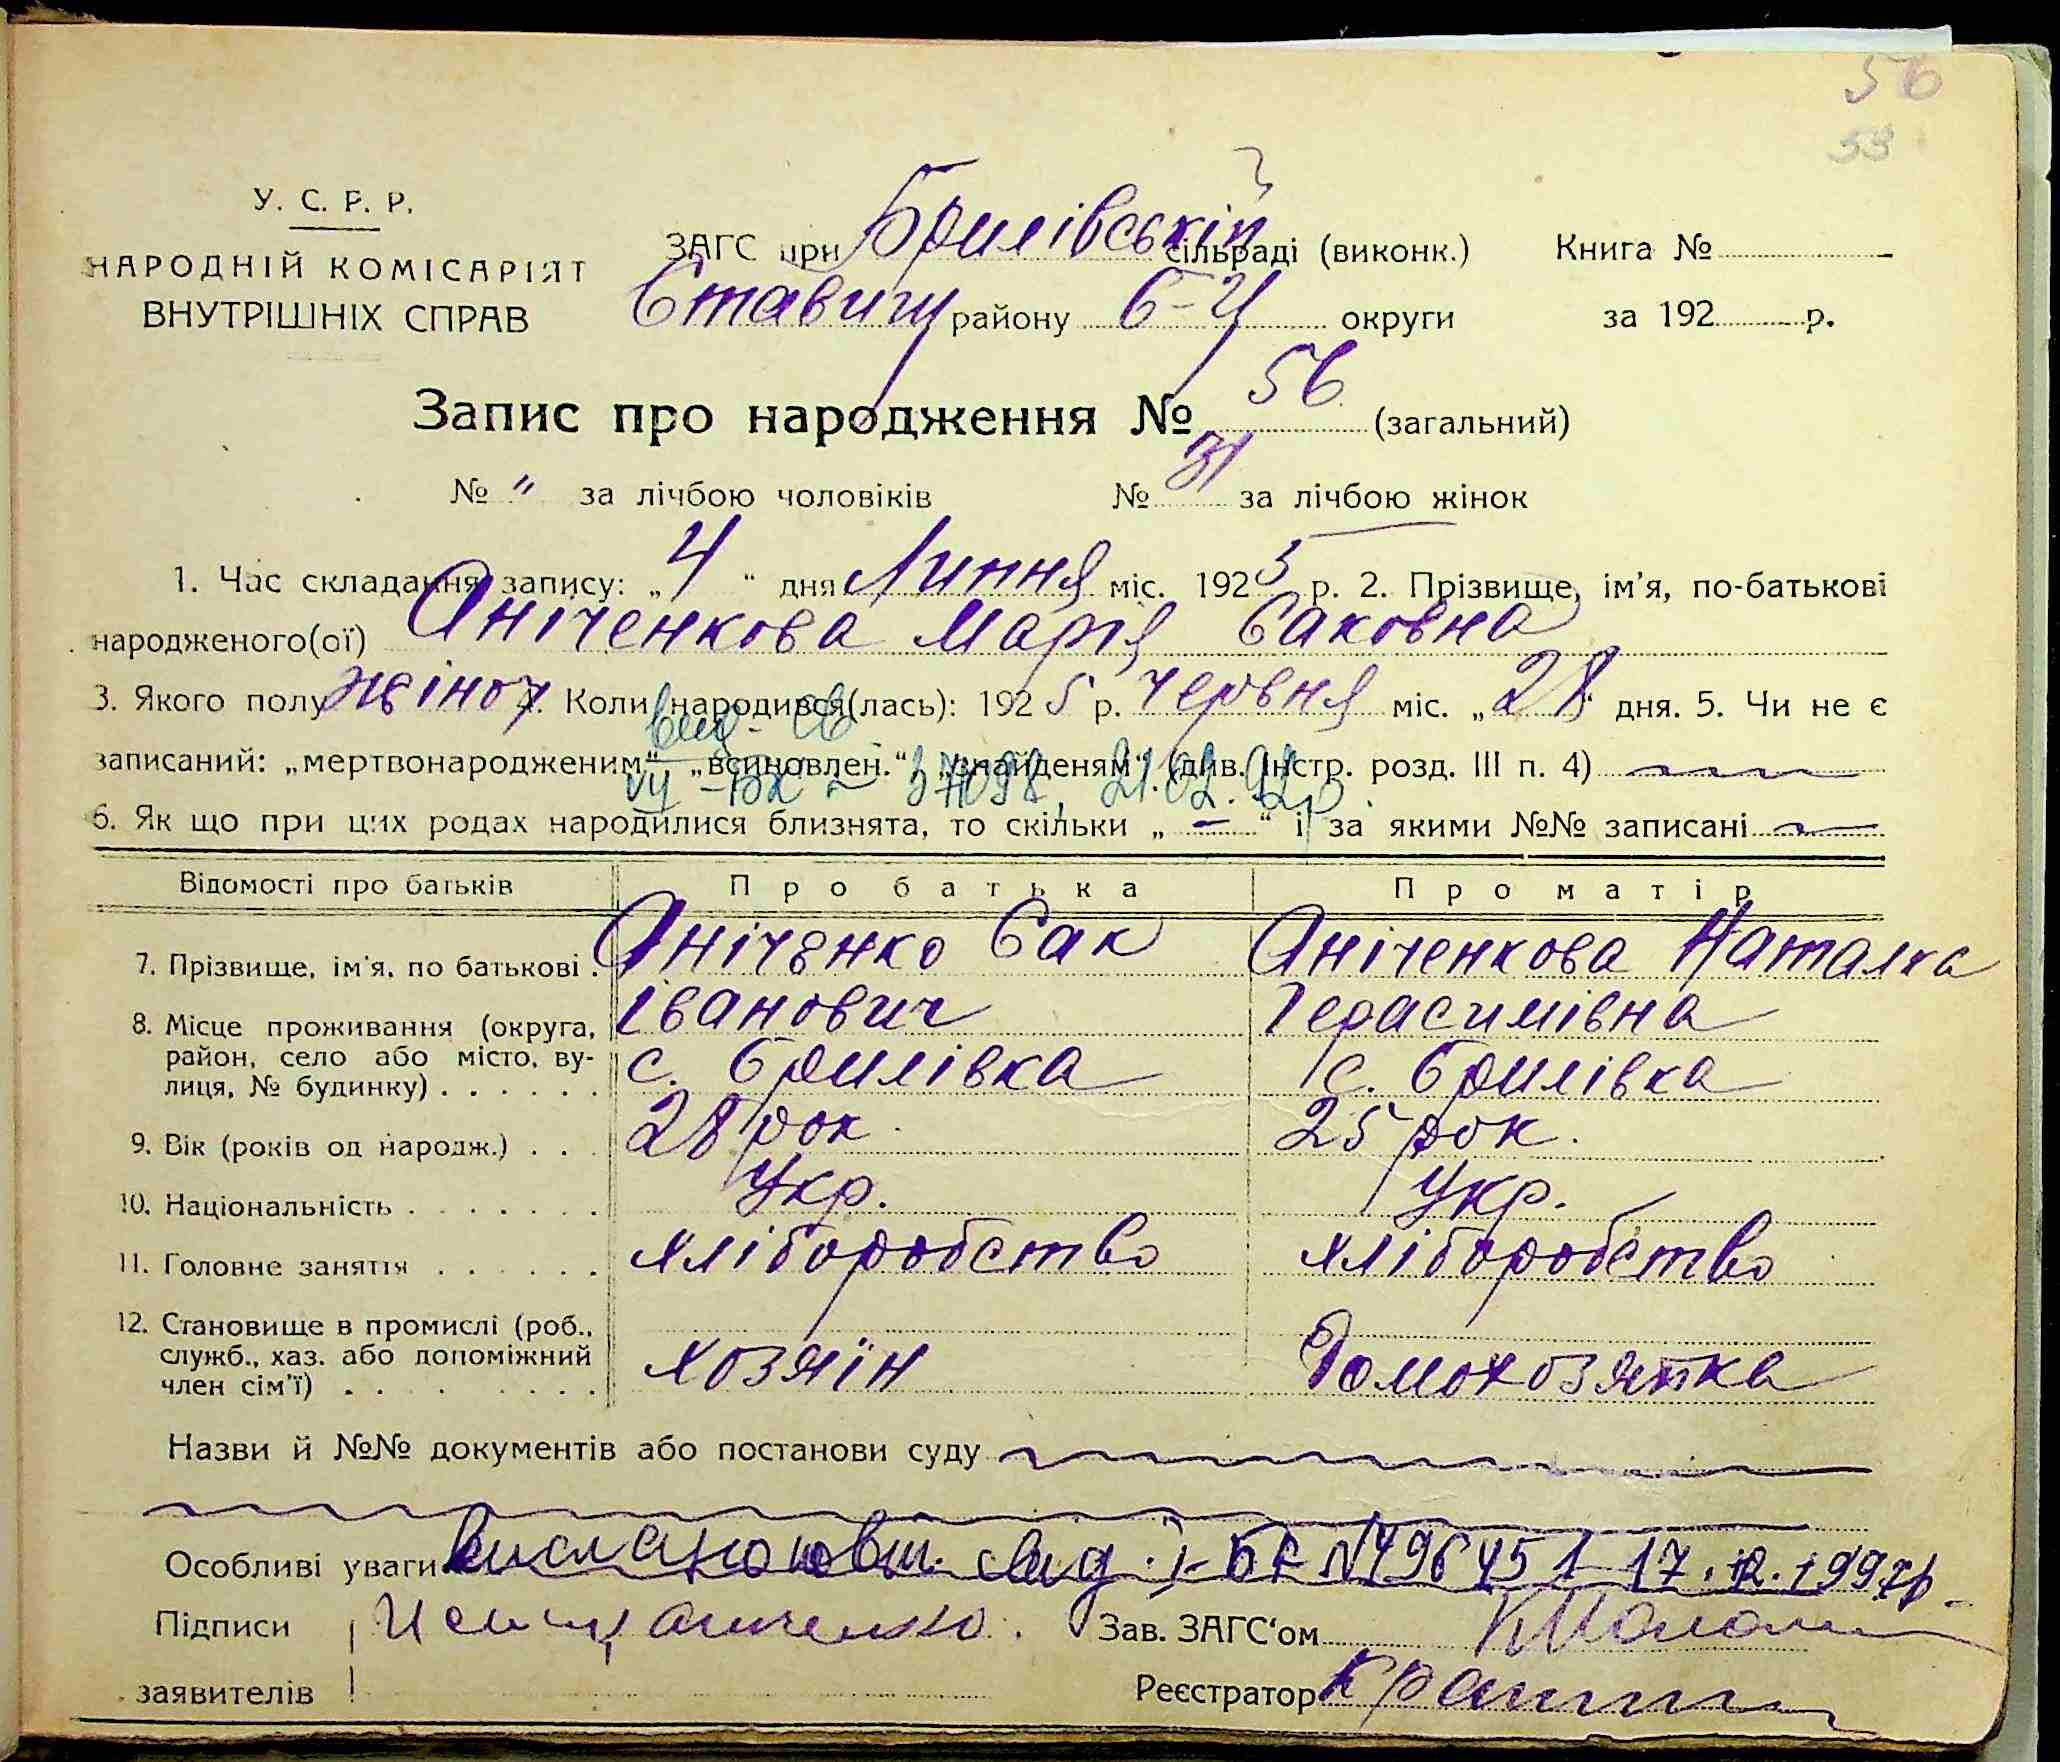 56
53
У. С. Р. Р.
НАРОДНІЙ КОМІСАРІЯТ
ВНУТРІШНІХ СПРАВ
ЗАГС при Брилівській сільраді (виконк.) Книга №
Ставищ району Б-Ц округи за 192 р.
Запис про народження № 56 (загальний)
№ " за лічбою чоловіків № 31 за лічбою жінок
1. Час складання запису: „4“ дня Липня міс. 1925 р. 2. Прізвище, ім'я, по-батькові
народженого(ої) Аніченкова Марія Саковна
3. Якого полу жіноч 4. Коли народився(лась): 1925 р. червня міс. „28“ дня. 5. Чи не є
вид. св
записаний: „мертвонародженим“ „всиновлен.“ „знайденям“ (див. інстр. розд. III п. 4)
6. Як що при цих родах народилися близнята, то скільки „ — “ і за якими №№ записані
Відомості про батьків Про батька Про матір
7. Прізвище, ім'я, по батькові . Аніченко Сак Аніченкова Наталка
Іванович Герасимівна
8. Місце проживання (округа,
район, село або місто, ву-
лиця, № будинку) . . . . . . с. Брилівка с. Брилівка
9. Вік (років од народж.) . . . 28 рок 25 рок.
10. Національність . . . . . . . Укр. Укр.
11. Головне заняття . . . . . . хліборобство хліборобство
12. Становище в промислі (роб.,
служб., хаз. або допоміжний
член сім'ї) . . . . . . . . хозяїн Домохозяйка
Назви й №№ документів або постанови суду
Особливі уваги повт. свид. I-БК №496451 17.12.1997р
Підписи Аниченко. Зав. ЗАГС'ом
заявителів Реєстратор